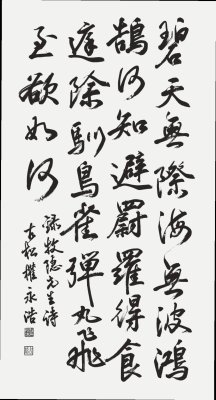 碧天無際海無波鴻
鵠何知避罻羅得食
庭除馴鳥雀彈丸飛
至欲如何
錄牧隱先生詩
古松權永浩